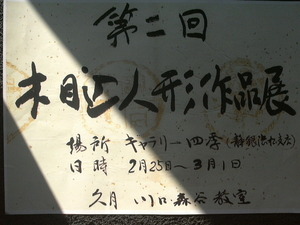 第二回
木目込人形作品展
場所 ギャラリー四季
日時 2月25日～3月1日
久月 川口森谷教室